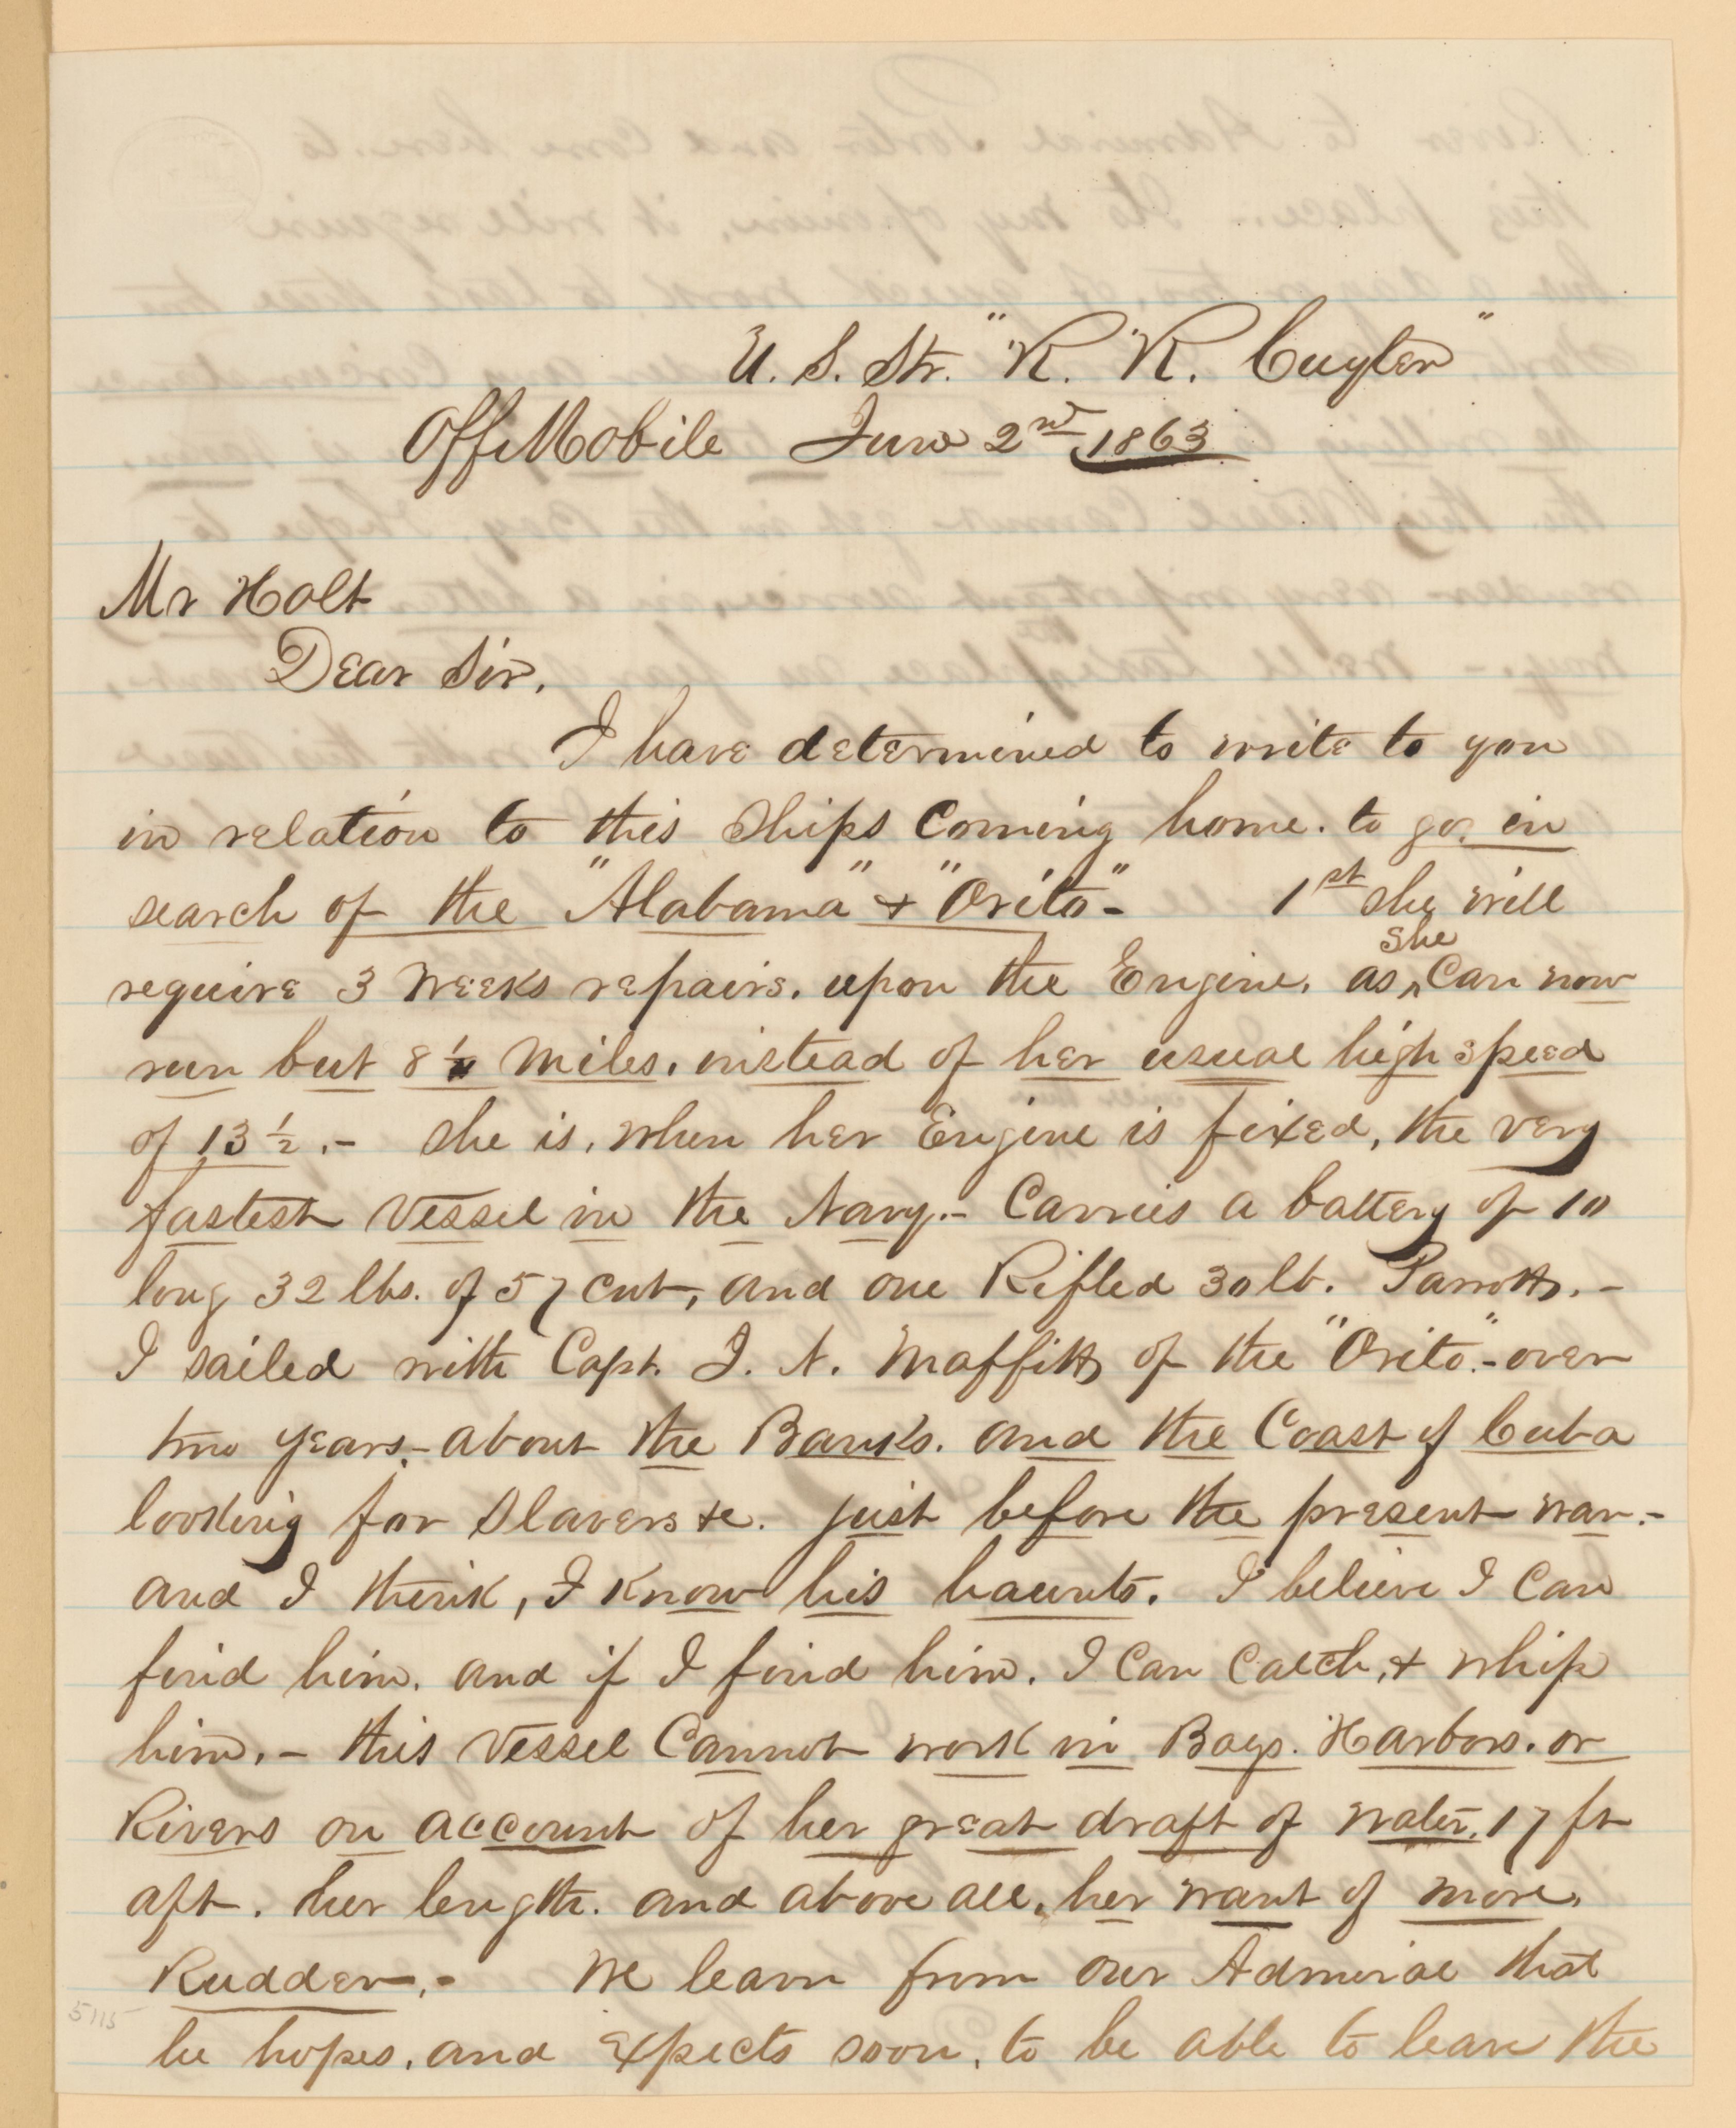 U. S. Str. "R. R. Cuyler"
Off Mobile June 2nd 1863
Mr Holt
Dear Sir,
I have determined to write to you
in relation to this Ships Coming home. to go in
search of the "Alabama" & "Orito"- 1st she will
require 3 weeks repairs. upon the Engine. as she Can now
run but 8 ½ Miles. instead of her usual high speed
of 13 ½.- She is, when her Engine is fixed, the very
fastest Vessel in the Navy.- Carries a battery of 10
long 32 lbs. of 57 cut, and one Rifled 30 lb. Parrott.-
I sailed with Capt. J. N. Maffitt of the "Orito"-over
two years,-about the Banks. and the Coast of Cuba
looking for Slavers &c. just before the present war.-
and I think, I know his haunts. I believe I Can
find him. and if I find him. I Can Catch, & whip
him.- this Vessel Cannot work in Bays. Harbors. or
Rivers on account of her great draft of water, 17 ft
aft. her length. and above all, her want of more
Rudder.- We learn from our Admiral that
he hopes, and Expects soon, to be able to leave the
5115